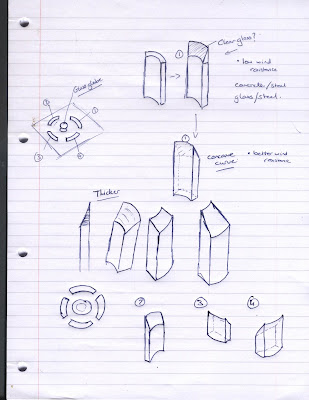 ① Clear glass?
• low wind
resistance
concrete/steel
glass/steel.
Glass globe
①
②
③
④
①
concave
curve
• better wind
resistance
Thicker
②
③
④